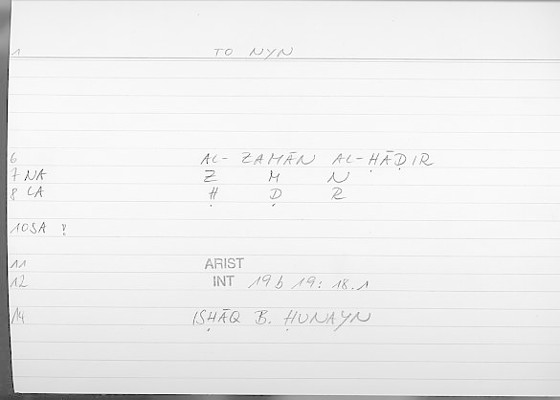 1 TO NYN
6 AL- ZAMĀN AL-ḤĀḌIR
7 NA Z M N
8 LA Ḥ Ḍ R
10SA ?
11 ARIST
12 INT 19b 19: 18.1
14 ISḤĀQ B. ḤUNAYN